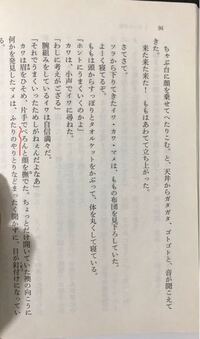 94
ちゃぶ台に顔を乗せてへたりこむ。と、天井からガタガタ、ゴトゴトと、音が聞こえて
きた。
来た来た来た！ ももはあわてて立ち上がった。
さてさて。
ソラから下りてきたイワ・カワ・マメは、ももの布団を見下ろしていた。
よーく寝てるぞ。
ももは頭からすっぽりとタオルケットをかぶって、体を丸くして寝ている。
「ホントにうまくいくのかよ」
カワは、小声でイワに尋ねた。
「わしに考えがござる」
腕組みをしているイワは自信満々だ。
「それでうまくいったためしがねぇんだよなあ」
カワは眉をひそめ、片手でぺろんと顔を撫でた。ちょっとだけ開いていた襖の向こうに
何かを発見したマメは、ふたりのやりとりなどまったく聞かずに、目が釘付けになってい